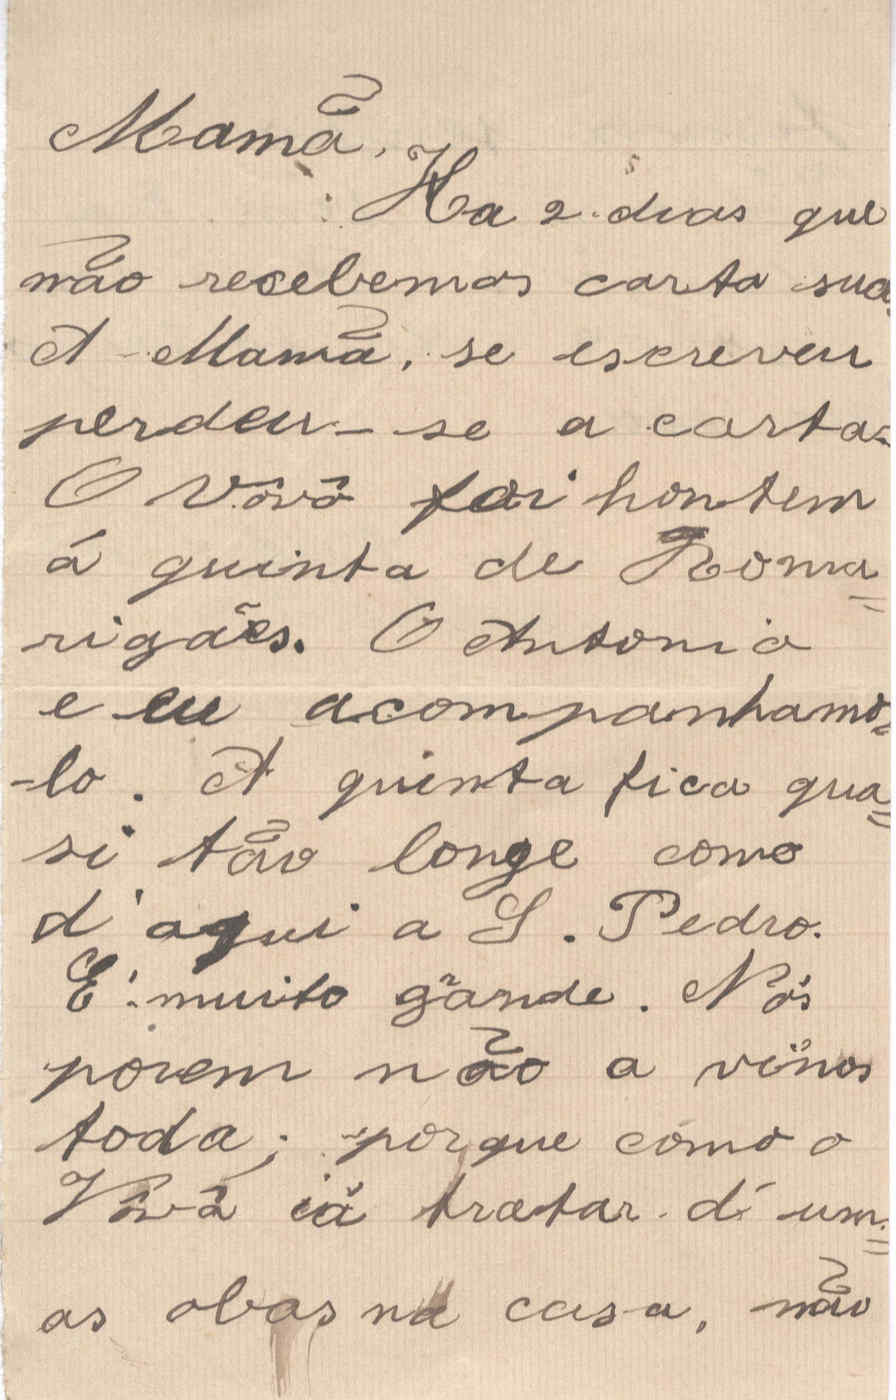 Mamã,
Ha 2 dias que
não recebemos carta sua.
A Mamã, se escreveu
perdeu-se a carta.
O Vôvô foi hontem
á quinta de Roma=
rigães. O Antonio
e eu acompanhamo-
-lo. A quinta fica qua=
si tão longe como
d'aqui a S. Pedro.
É muito grande. Nós
porem não a vimos
toda; porque como o
Vôvô iá tratar d'um=
as obas na casa, não